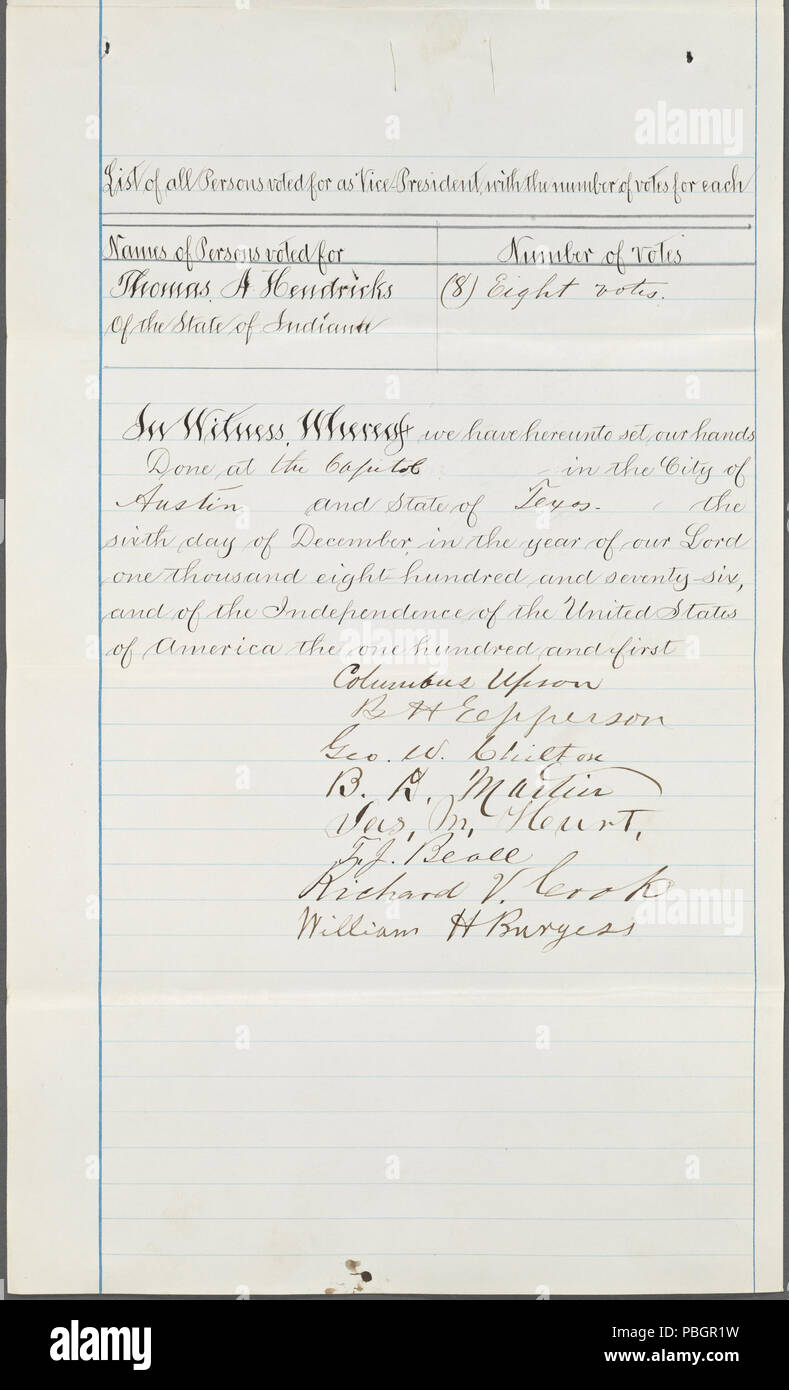 List of all Persons voted for as Vice President, with the number of votes for each
Names of Persons voted for Number of Votes
Thomas A Hendricks (8) Eight votes.
Of the State of Indiana
In Witness Whereof we have hereunto set our hands
Done at the Capitol in the City of
Austin and State of Texas. the
sixth day of December, in the year of our Lord
one thousand eight hundred and seventy-six,
and of the Independence of the United States
of America the one hundred and first
Columbus Upson
B H Epperson
Geo. W. Chilton
B. B. Martin
Jas. M. Hurt.
T. J. Beall
Richard V. Cook
William H Burgess
alamy
Image ID: PBGR1W
www.alamy.com